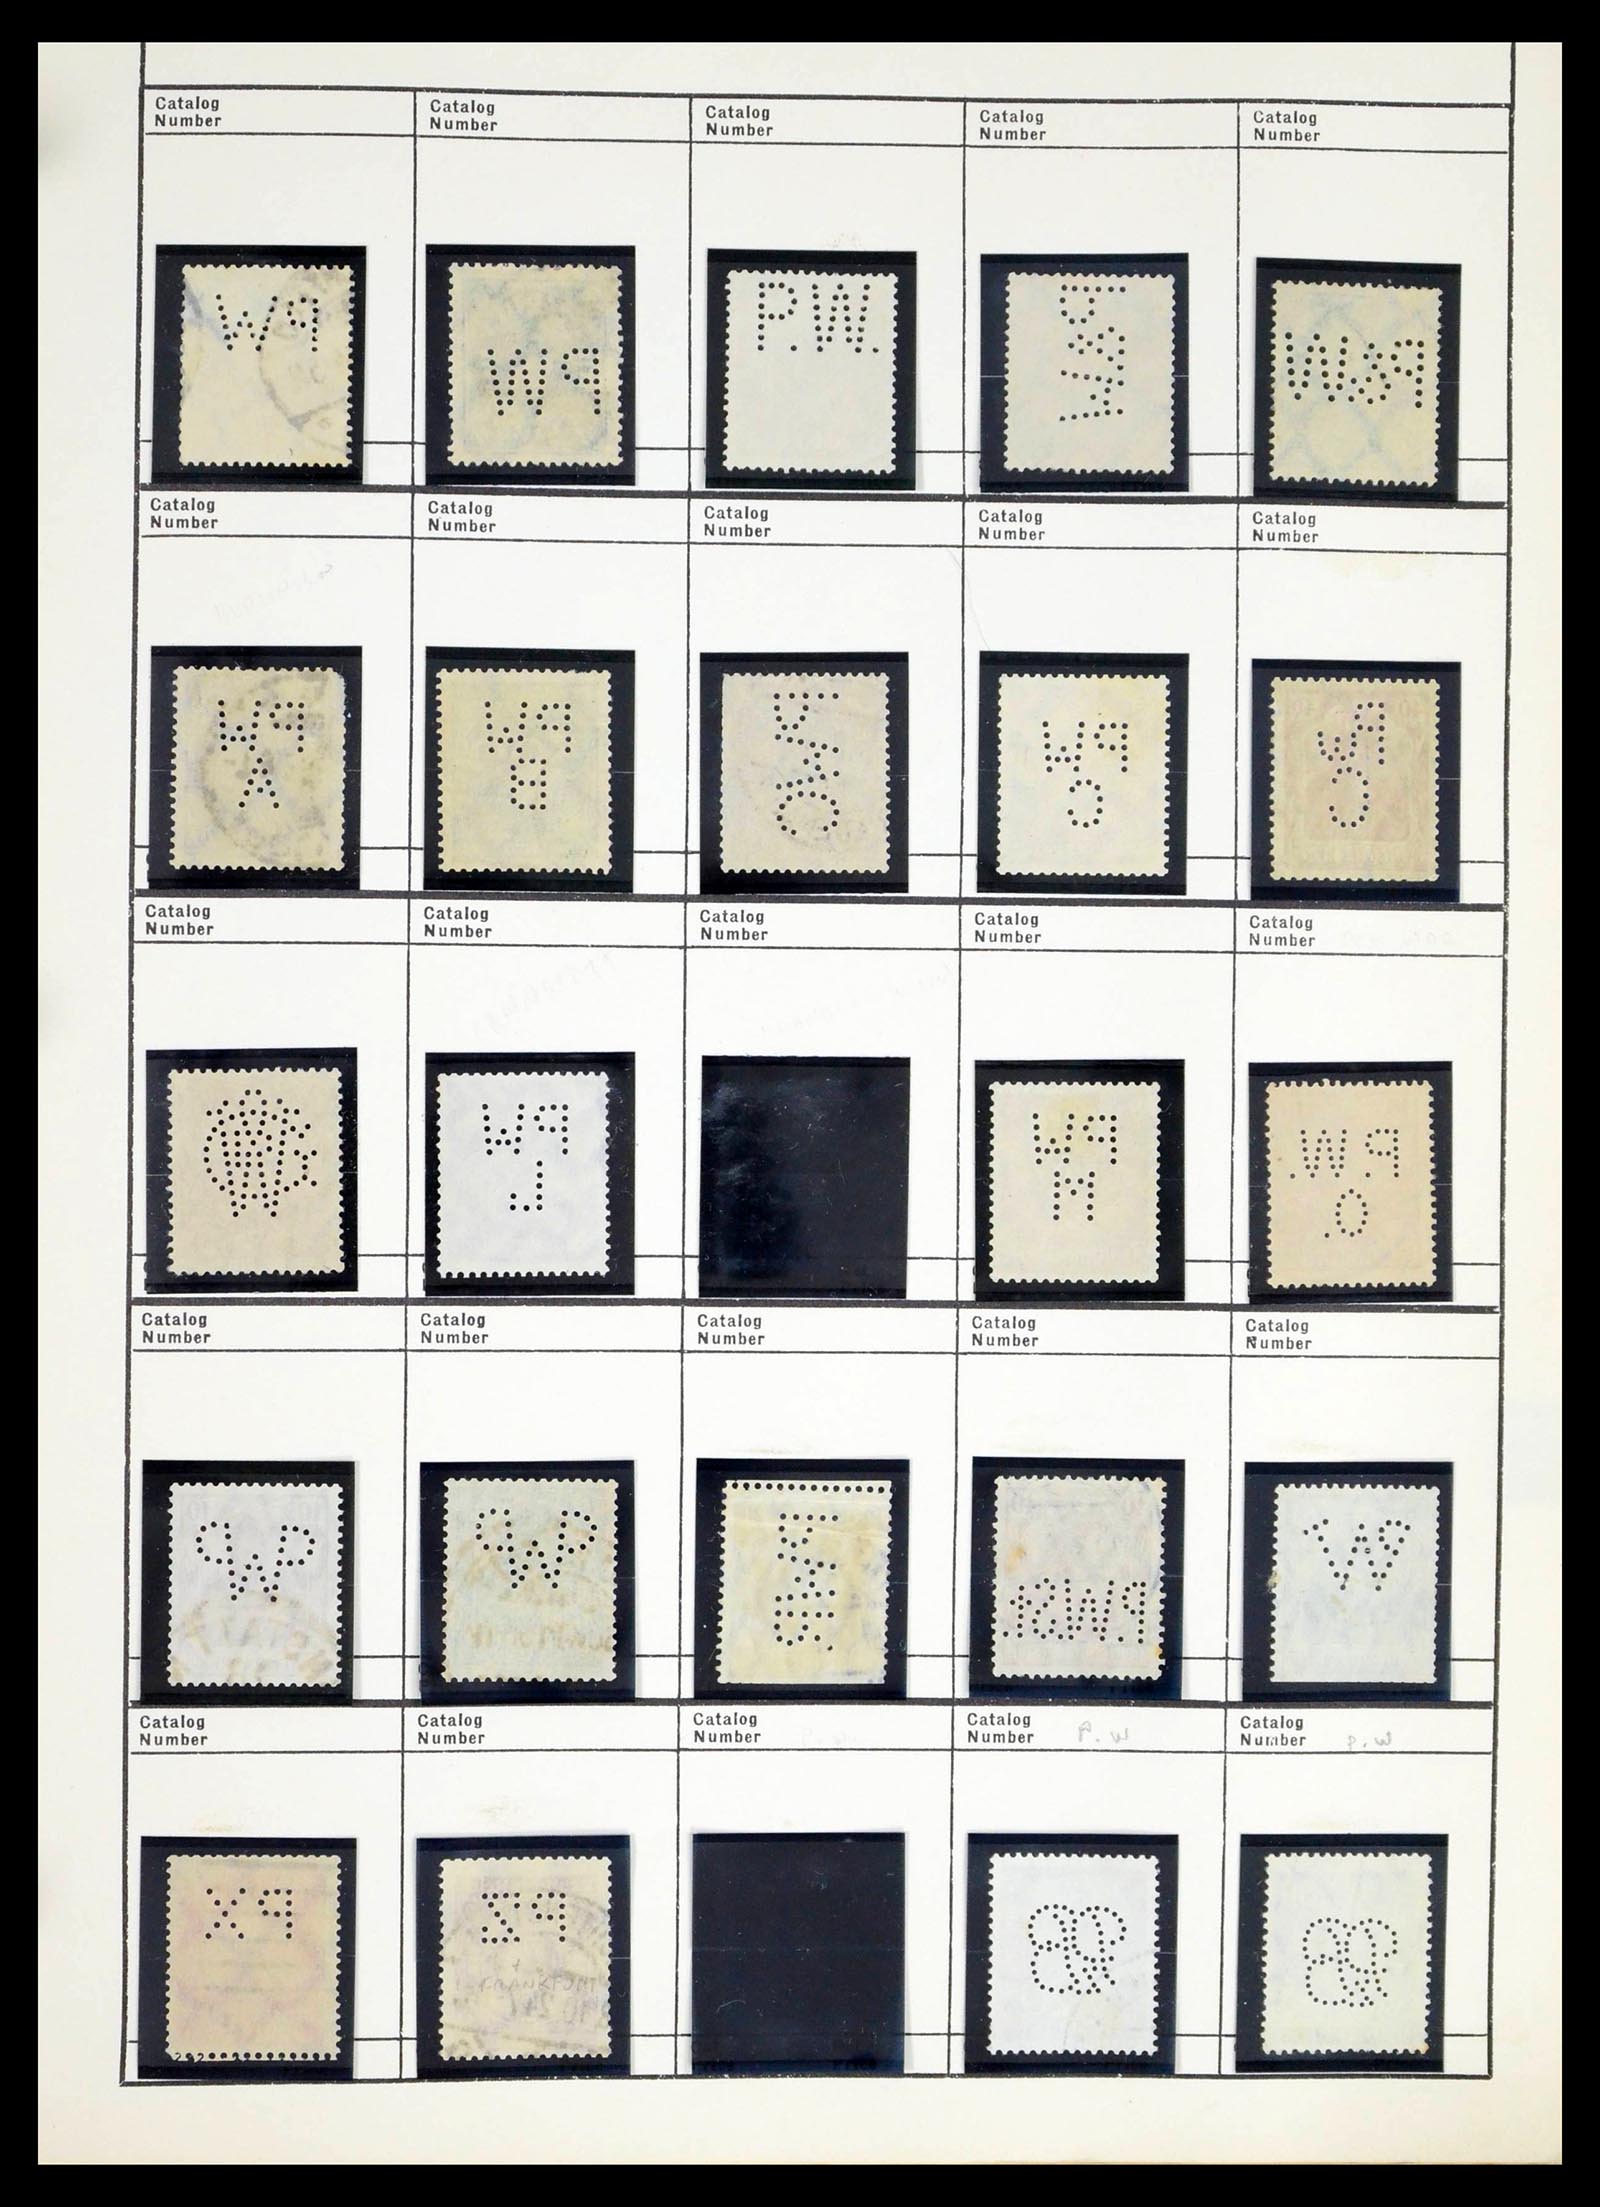 Catalog Number
Catalog Number
Catalog Number
Catalog Number
Catalog Number
PW
PW
P.W.
P&W
P&W
Catalog Number
Catalog Number
Catalog Number
Catalog Number
Catalog Number
PW
A
PW
B
PW
C
PW
C
Catalog Number
Catalog Number
Catalog Number
Catalog Number
Catalog Number
PW
L
PW
M
P.W.
O.
Catalog Number
Catalog Number
Catalog Number
Catalog Number
Catalog Number
PWP
PWP
P.W.St.
Catalog Number
Catalog Number
Catalog Number
Catalog Number
P.W
Catalog Number
P.W
PX
PZ
+
FRANKFURT